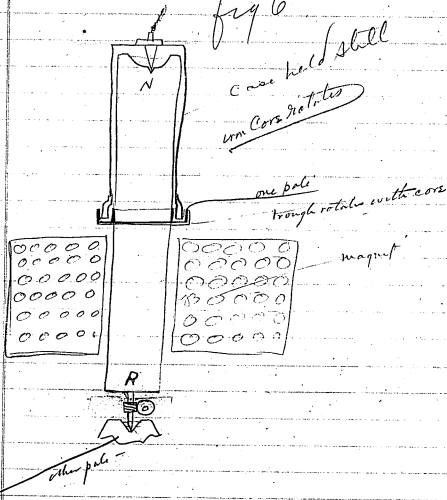 fig 6
case held still
iron Core rotates
N
one pole
trough rotates with core
magnet
R
other pole –